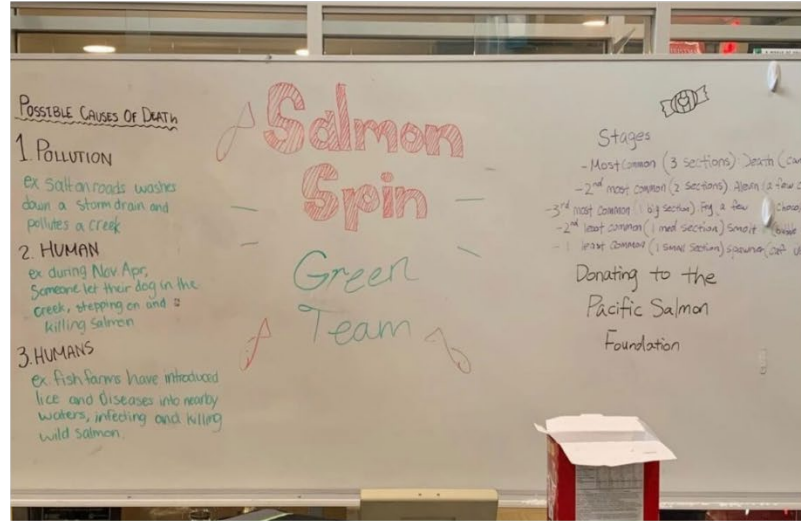 POSSIBLE CAUSES OF DEATH
1. POLLUTION
ex salt on roads washes
down a storm drain and
pollutes a creek
2. HUMAN
ex during Nov. Apr,
Someone let their dog in the
creek, stepping on and
killing salmon
3. HUMANS
ex. fish farms have introduced
lice and diseases into nearby
waters, infecting and killing
wild salmon.
Salmon
Spin
Green
Team
Stages
- Most Common (3 sections) Death (
- 2nd most common (2 sections) Alevin (a few
- 3rd most common (1 big section) Fry a few
- 2nd least common (1 med section) smolt
- 1 least common (1 small section) spawner (
Donating to the
Pacific Salmon
Foundation